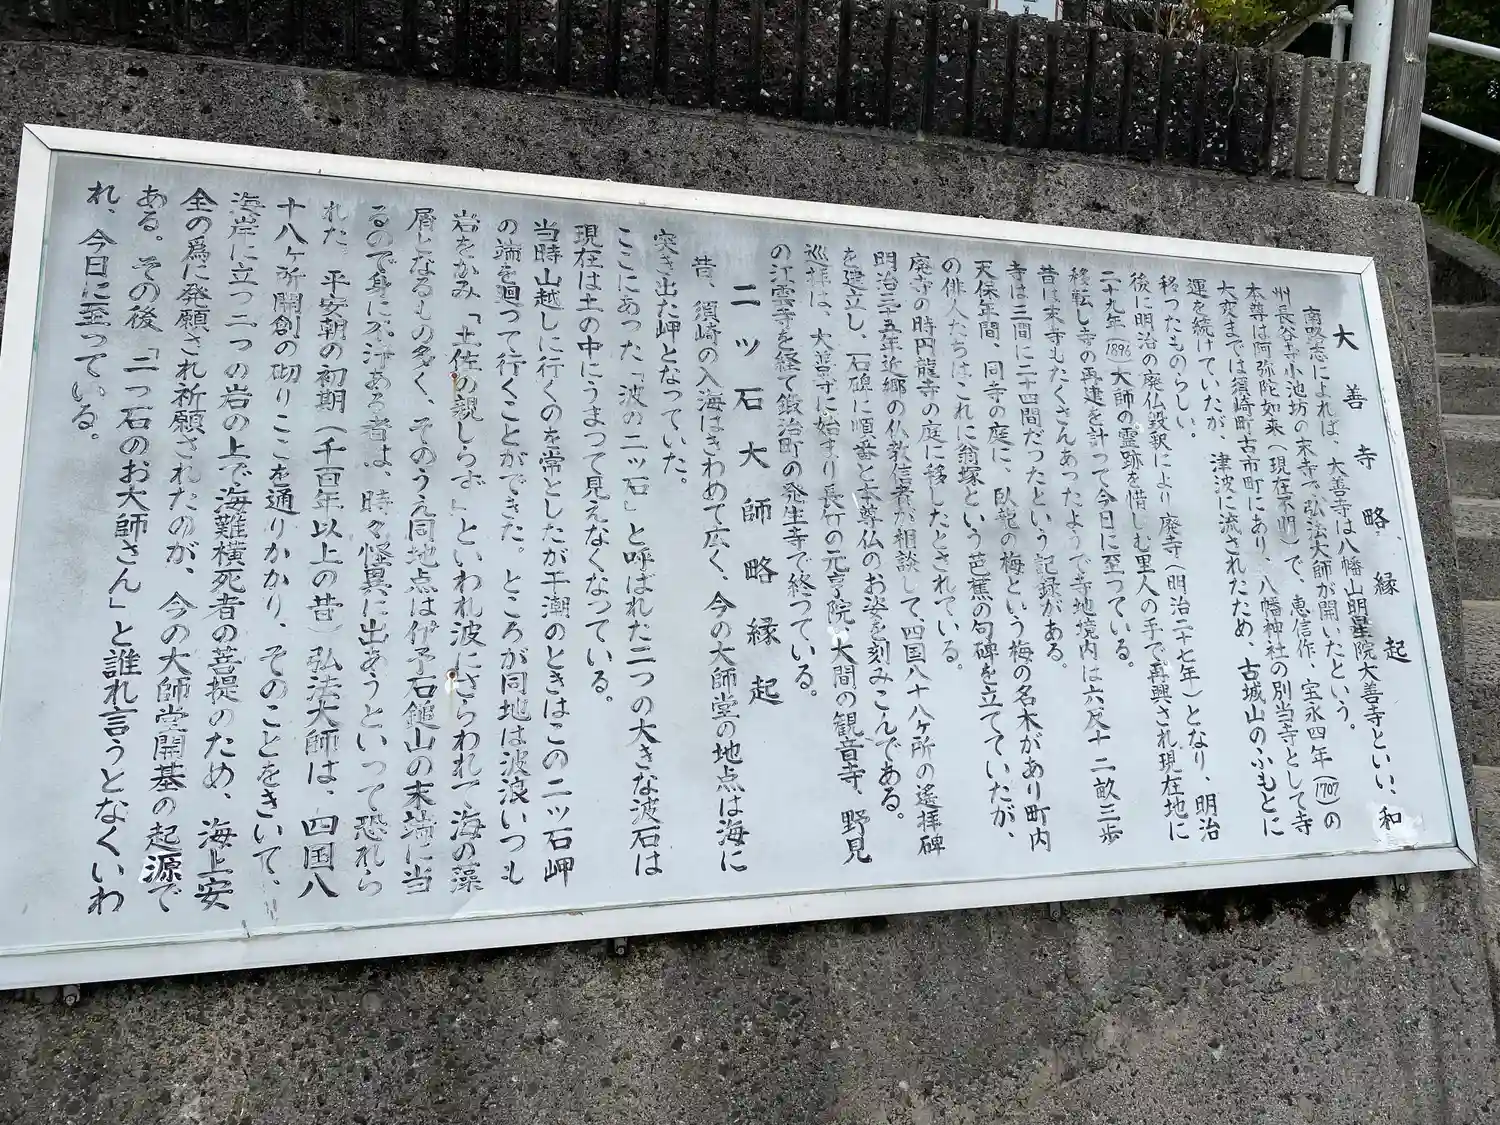 大善寺略縁起
南路志によれば、大善寺は八幡山明星院大善寺といい、和
州長谷寺小池坊の末寺で弘法大師が開いたという。
本尊は阿弥陀如来（現在不明）で、恵信作、宝永四年（1707）の
大変までは須崎町古市町にあり、八幡神社の別当寺として寺
運を続けていたが、津波に流されたため、古城山のふもとに
移ったものらしい。
後に明治の廃仏毀釈により廃寺（明治二十七年）となり、明治
二十九年（1896）大師の霊跡を惜しむ里人の手で再興され現在地に
移転し寺の再建を計って今日に至っている。
昔は末寺もたくさんあったようで寺地境内は六反十二畝三歩
寺は三間に二十四間だったという記録がある。
天保年間、同寺の庭に、臥龍の梅という梅の名木があり町内
の俳人たちはこれに翁塚という芭蕉の句碑を立てていたが、
廃寺の時円龍寺の庭に移したとされている。
明治三十五年近郷の仏教信者が相談して、四国八十八ケ所の遙拝碑
を建立し、石碑に順番と本尊仏のお姿を刻みこんである。
巡拝は、大善寺に始まり長竹の元亨院、大間の観音寺、野見
の江雲寺を経て鍛治町の発生寺で終っている。
二ッ石大師略縁起
昔、須崎の入海はきわめて広く、今の大師堂の地点は海に
突き出た岬となっていた。
ここにあった「波の二ッ石」と呼ばれた二つの大きな波石は
現在は土の中にうまって見えなくなっている。
当時山越しに行くのを常としたが干潮のときはこの二ッ石岬
の端を廻って行くことができた。ところが同地は波浪いつも
岩をかみ「土佐の親しらず」といわれ波にさらわれて海の藻
屑となるもの多く、そのうえ同地点は伊予石鎚山の末端に当
るので身に不浄ある者は、時々怪異に出あうといって恐れら
れた。平安朝の初期（千百年以上の昔）弘法大師は、四国八
十八ヶ所開創の砌りここを通りかかり、そのことをきいて、
海岸に立つ二つの岩の上で海難横死者の菩提のため、海上安
全の為に発願され祈願されたのが、今の大師堂開基の起源で
ある。その後「二つ石のお大師さん」と誰れ言うとなくいわ
れ、今日に至っている。